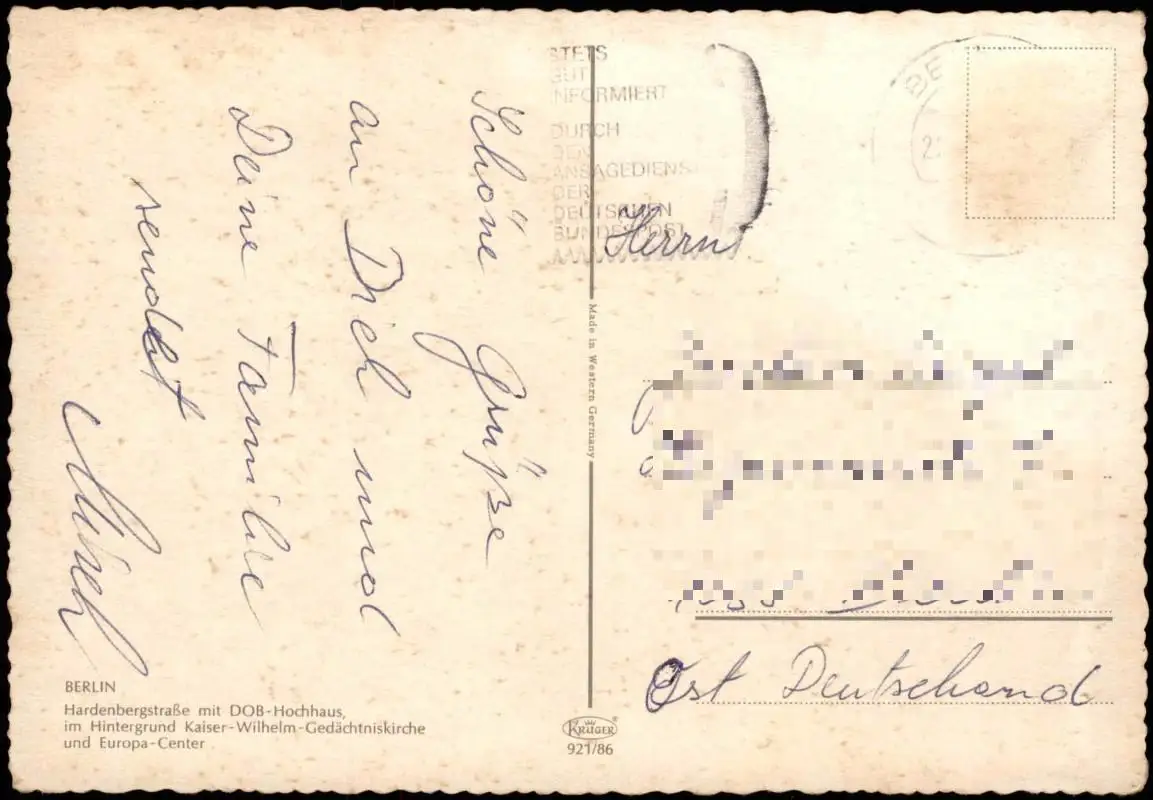 Schöne Grüße
an Dich und
Deine Familie
sendet
STETS
GUT
INFORMIERT
DURCH
DEN
ANSAGEDIENST
DER
DEUTSCHEN
BUNDESPOST
BE
Herrn
Ost Deutschand
Made in Western Germany
BERLIN
Hardenbergstraße mit DOB-Hochhaus,
im Hintergrund Kaiser-Wilhelm-Gedächtniskirche
und Europa-Center
KRÜGER
921/86